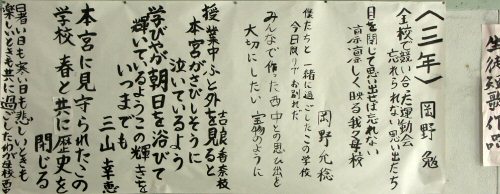 生徒短歌作品
〈三年〉
岡野 勉
全校で競い合った運動会
忘れられない思い出たち
目を閉じて思い出せば忘れない
凛凛しく映る我が母校
岡野允稔
僕たちと一緒に過ごしたこの学校
今日限りでお別れだ
みんなで作った西中との思ひ出を
大切にしたい宝物のように
吉良香奈枝
授業中ふと外を見ると
本宮がさびしそうに
泣いているよう
学びやが朝日を浴びて
輝いているようこの輝きを
いつまでも
三山幸恵
本宮に見守られたこの
学校 春と共に歴史を
閉じる
暑い日も寒い日も悲しいときも
楽しいときも共に過ごしたわが母校西中